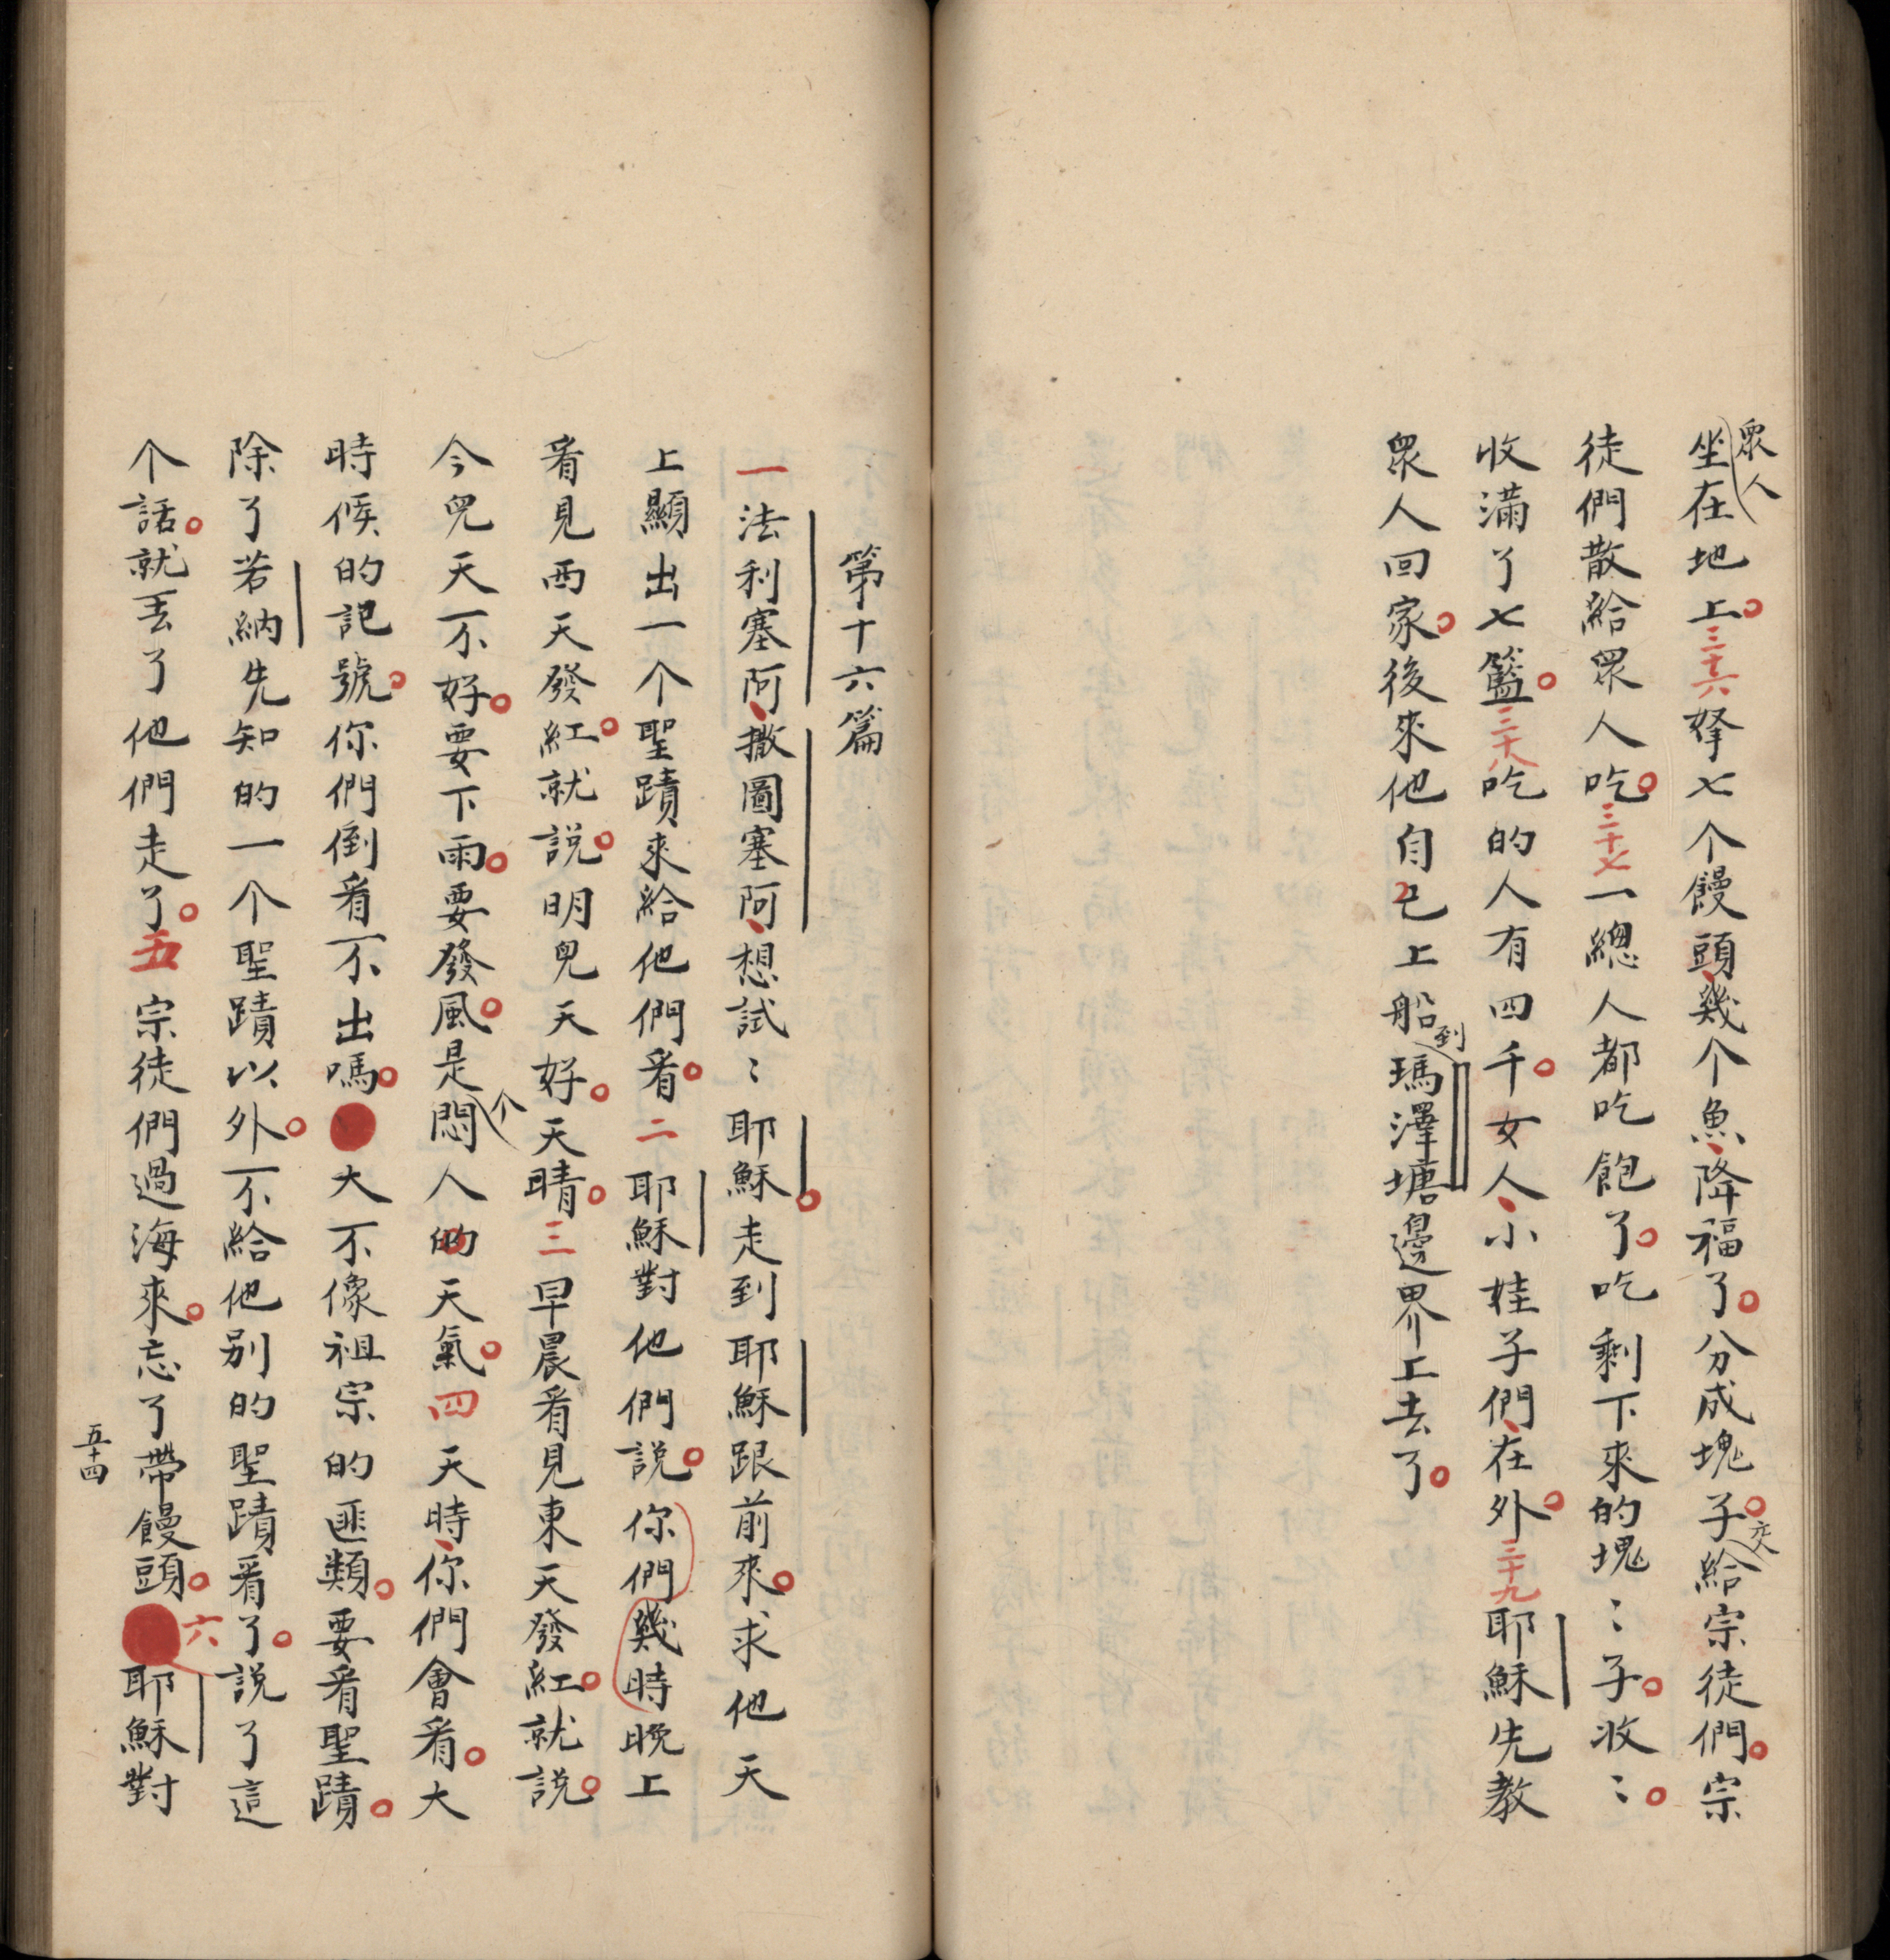 衆人坐在地上。三十六拏七个饅頭、幾个魚、降福了。分成塊子。交給宗徒們。宗
徒們散給衆人吃。三十七一總人都吃飽了。吃剩下來的塊〻子。收〻。
收滿了七籃。三十八吃的人有四千。女人、小娃子們、在外。三十九耶穌先教
衆人回家。後來他自己上船到瑪澤塘邊界上去了。
第十六篇
一法利塞阿、撒圖塞阿、想試〻耶穌。走到耶穌跟前來。求他天
上顯出一个聖蹟來給他們看。二耶穌對他們說。你們幾時晚上
看見西天發紅。就說。明兒天好。天晴。三早晨看見東天發紅。就說。
今兒天不好。要下雨。要發風。是个悶人的天氣。四天時、你們會看。大
時候的記號。你們倒看不出嗎。大不像祖宗的匪類。要看聖蹟。
除了若納先知的一个聖蹟以外。不給他别的聖蹟看了。說了這
个話。就丟了他們走了。五宗徒們過海來。忘了帶饅頭。六耶穌對
五十四